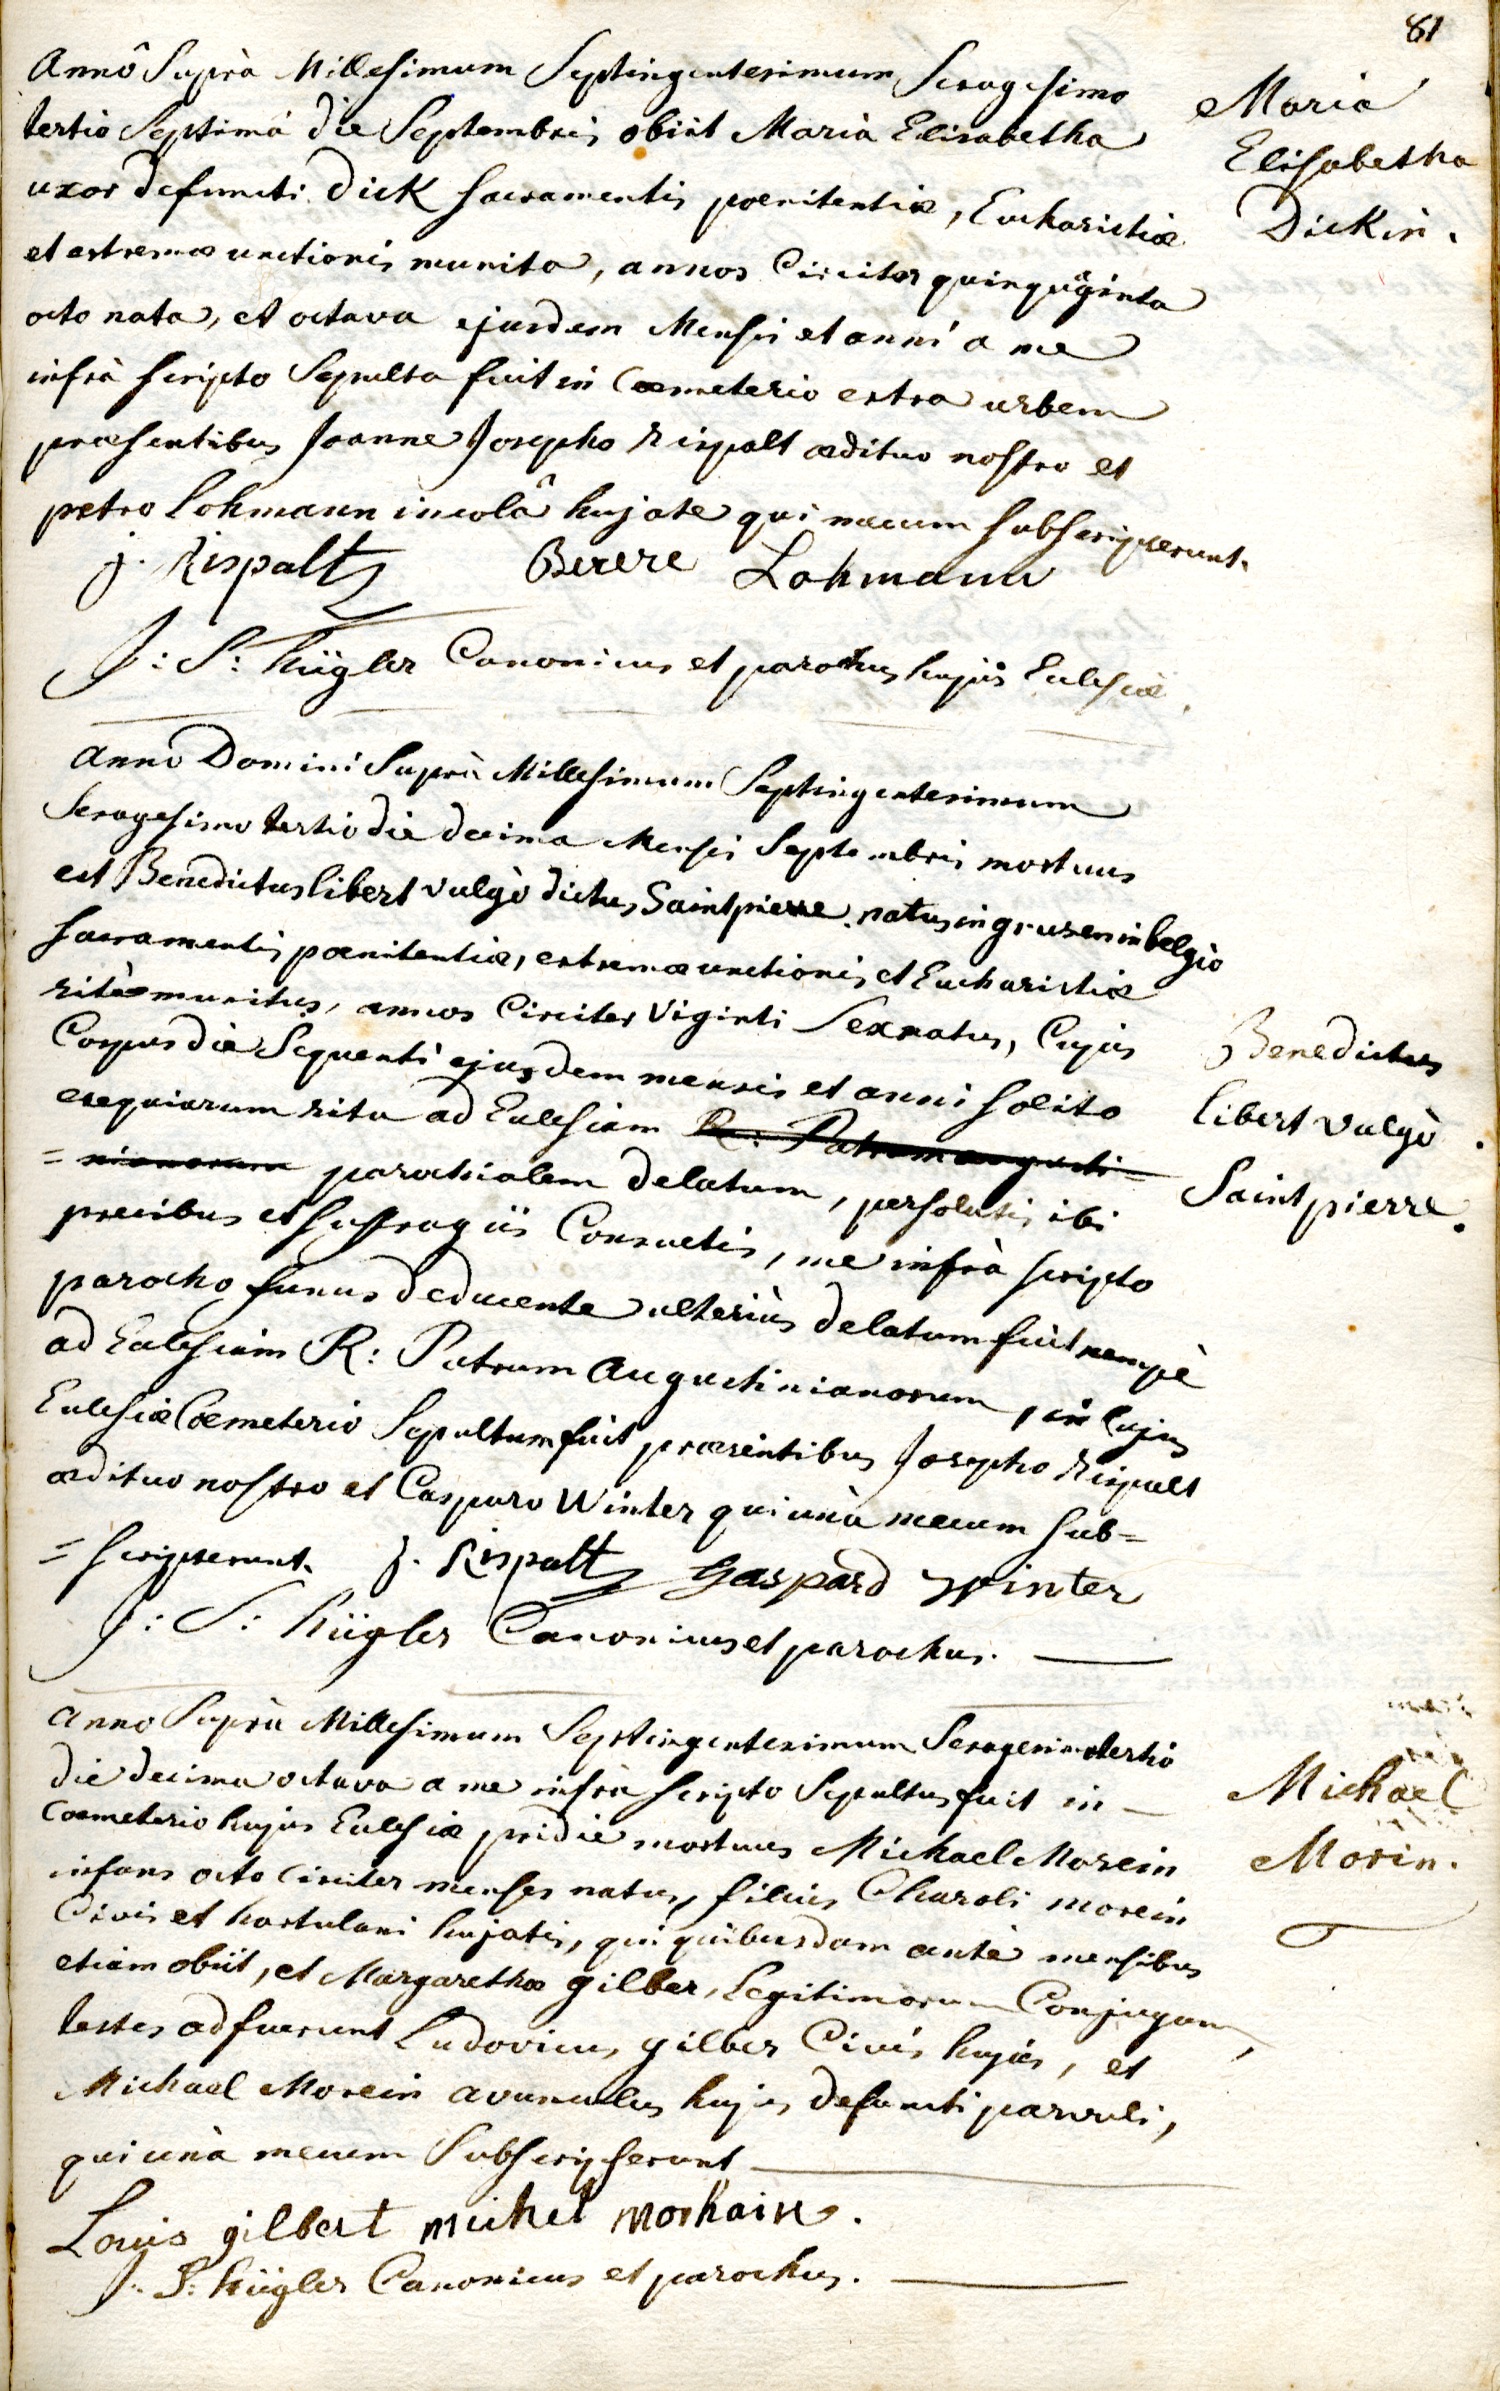 81
Annô Suprà Millesimum Septingentesimum Sexagesimo
tertio Septimâ die Septembris obiit Maria Elisabetha
uxor defuncti Dick sacramentis poenitentiæ, Eucharistiæ
et extremæ unctionis munita, annos Circiter quinquaginta
octo nata, et octava ejusdem Mensis et anni a me
infrà scripto Sepulta fuit in Coemeterio extra urbem
præsentibus Joanne Josepho Rispalt ædituo nostro et
petro Lohmann incolâ hujate qui mecum subscripserunt.
j. Rispalt Berere Lohmann
J: S: Kügler Canonicus et parochus hujus Ecclesiæ.
Maria
Elisabetha
Dickin.
Anno Domini Suprà Millesimum Septingentesimum
Sexagesimo tertio die decima Mensis Septembris mortuus
est Benedictus libert vulgò dictus Saintpierre. natus in grusen in belgiò
sacramentis poenitentiæ, extremæ unctionis et Eucharistiæ
ritè munitus, annos Circiter Viginti Sex natus, Cujus
Corpus die Sequenti ejusdem mensis et anni solito
exequiarum ritu ad Ecclesiam R: Patrum augusti=
=nianorum parochialem delatum, persolutis ibi
precibus et suffragiis Consuetis, me infrà scripto
parocho funus deducente ulteriùs delatum fuit nempè
ad Ecclesiam R: Patrum Augustinianorum, in Cujus
Ecclesiæ Coemeterio Sepultum fuit præsentibus Josepho Rispalt
ædituo nostro et Casparo Winter qui unà mecum sub=
=scripserunt. j. Rispalt Gaspard Winter
J: S: Kügler Canonicus et parochus.
Benedictus
libert vulgò
Saintpierre.
Anno Suprà Millesimum Septingentesimum Sexagesimo tertio
die decima octava a me infrà scripto Sepultus fuit in
Coemeterio hujus Ecclesiæ pridie mortuus Michael Morein
infans octo circiter menses natus, filius Charoli morein
Civis et hortulani hujatis, qui quibusdam antè mensibus
etiam obiit, et Margarethæ gilber, Legitimorum Conjugum,
testes adfuerunt Ludovicus gilber Civis hujas, et
Michael Morein avunculus hujus defuncti parvuli,
qui unà mecum Subscripserunt
Louis gilbert michel morhain.
J: S: Kügler Canonicus et parochus.
Michael
Morin.